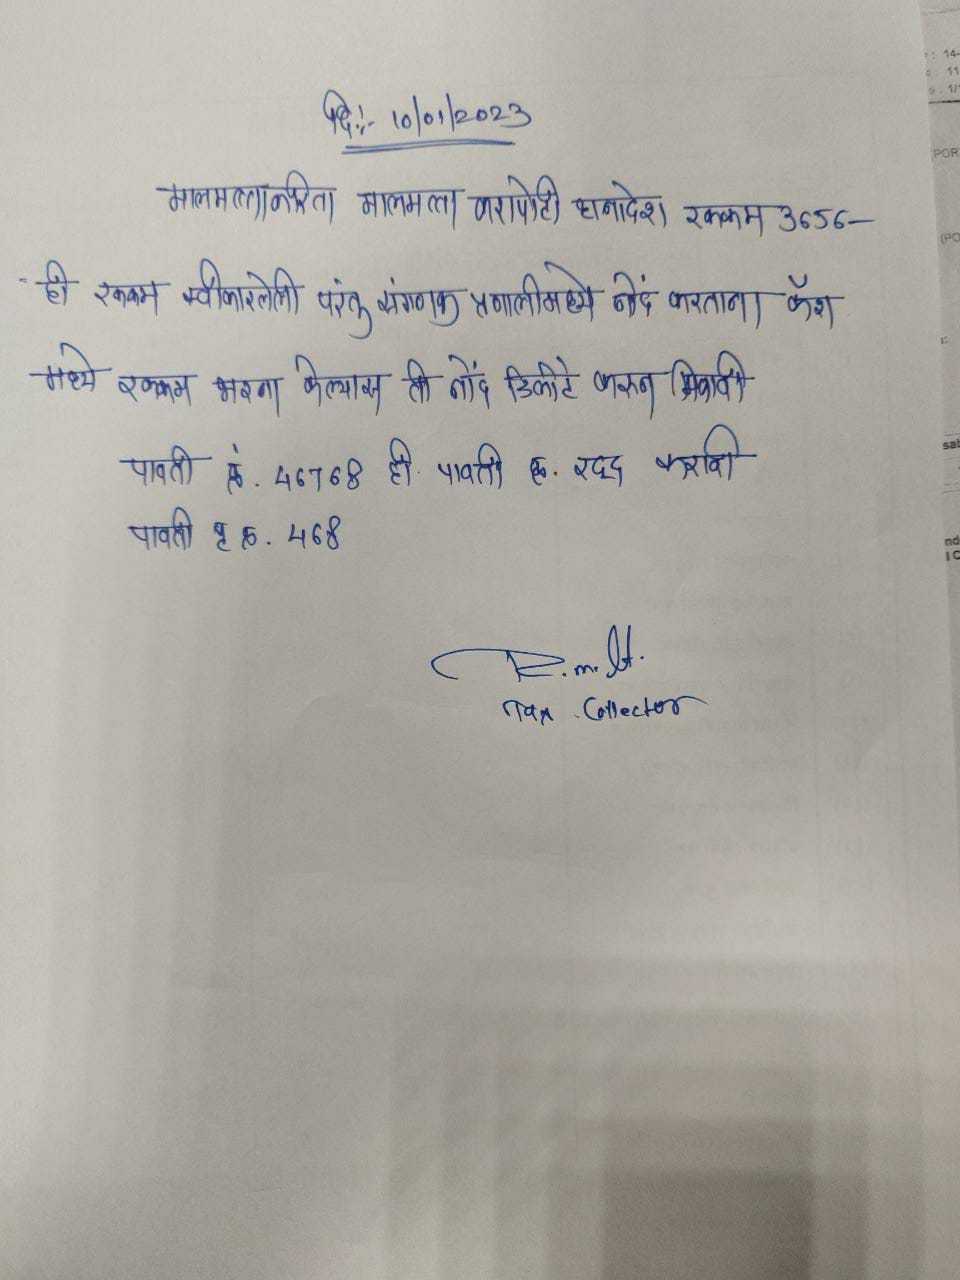 दि:- 10/01/2023
मालमत्ताकरिता मालमत्ता करापोटी धनादेश रक्कम 3656-
ही रक्कम स्वीकारलेली परंतु संगणक प्रणालीमध्ये नोंद करताना कॅश
मध्ये रक्कम भरणा केल्यास ती नोंद डिलीटे करुन मिळावी
पावती क्रं. 46768 ही पावती क्र. रद्द करावी
पावती पृ क्र. 468
Tax Collector
: 14-
: 11
: 1/1
POR
(PO
sat
nd
I C